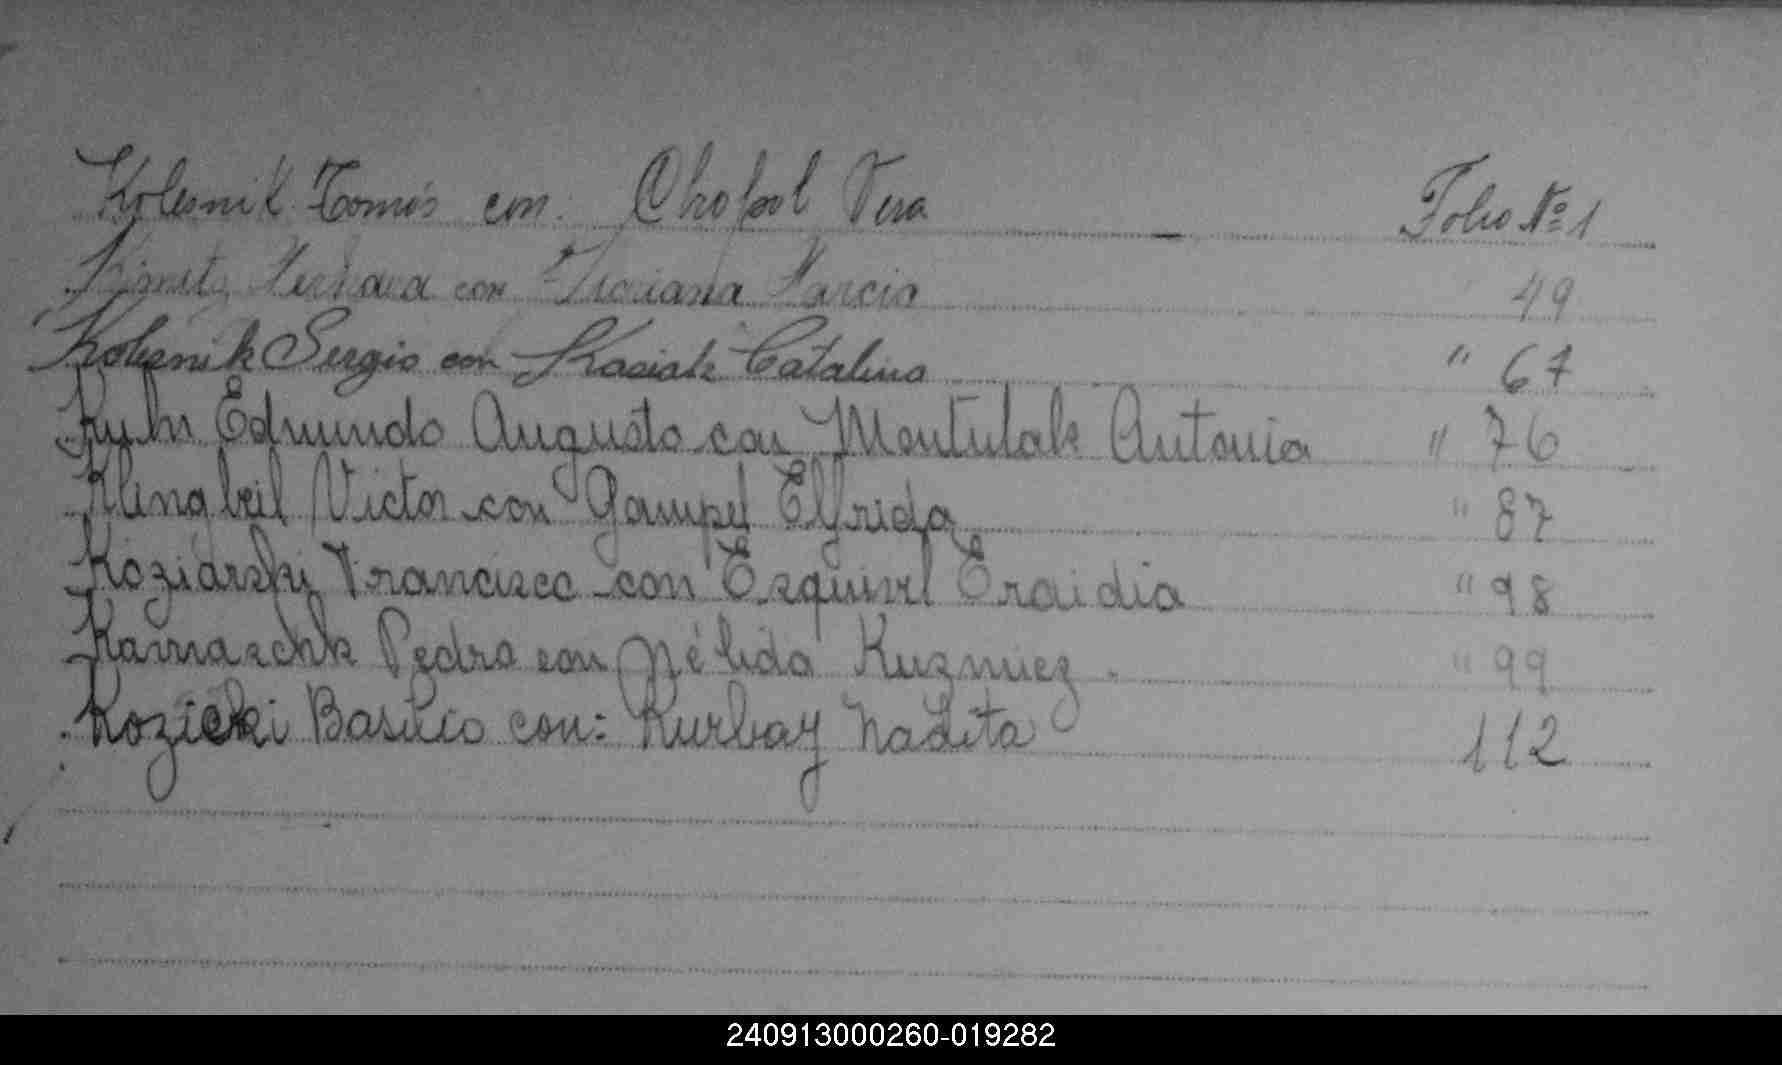 Kolesnik Tomás con. Chopol Vera Folio Nº 1
con Marcia 49
Kolesnik Sergio con Kasiak Catalina " 67
Kuhn Edmundo Augusto con Montulak Antonia " 76
Klingbeil Victor con Gampel Elfrida " 87
Koziarski Francisco con Esquivel Eraidia " 98
Kamaschk Pedro con Nélida Kuzmicz. " 99
Kozicki Basilio con: Kurbay Nadita 112
240913000260-019282